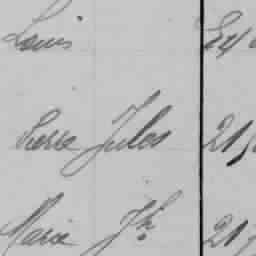 Louis
Pierre Jules 21
Marie Jh 21